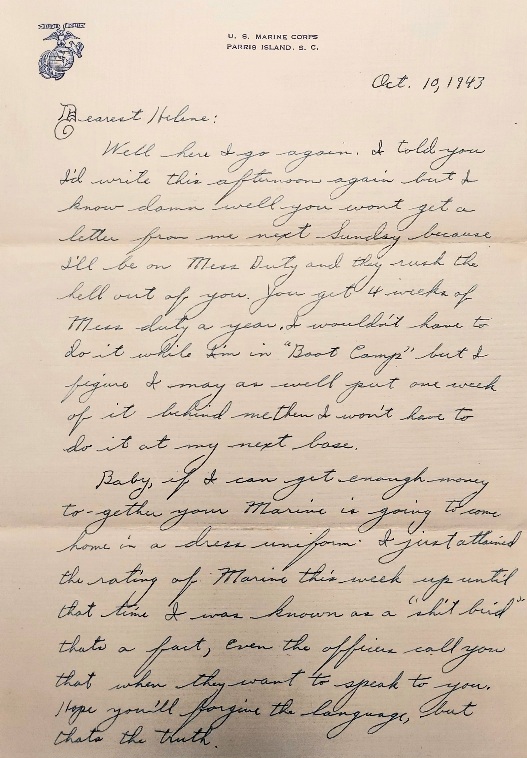 U. S. MARINE CORPS
PARRIS ISLAND, S. C.
Oct. 10, 1943
Dearest Helene:
Well here I go again. I told you
I'd write this afternoon again but I
know damn well you wont get a
letter from me next Sunday because
I'll be on Mess Duty and they rush the
hell out of you. You get 4 weeks of
Mess duty a year. I wouldn't have to
do it while I'm in "Boot Camp" but I
figure I may as well put one week
of it behind me then I won't have to
do it at my next base.
Baby, if I can get enough money
to-gether your Marine is going to come
home in a dress uniform. I just attained
the rating of Marine this week up until
that time I was known as a "shit bird"
thats a fact, even the officers call you
that when they want to speak to you.
Hope you'll forgive the language, but
thats the truth.